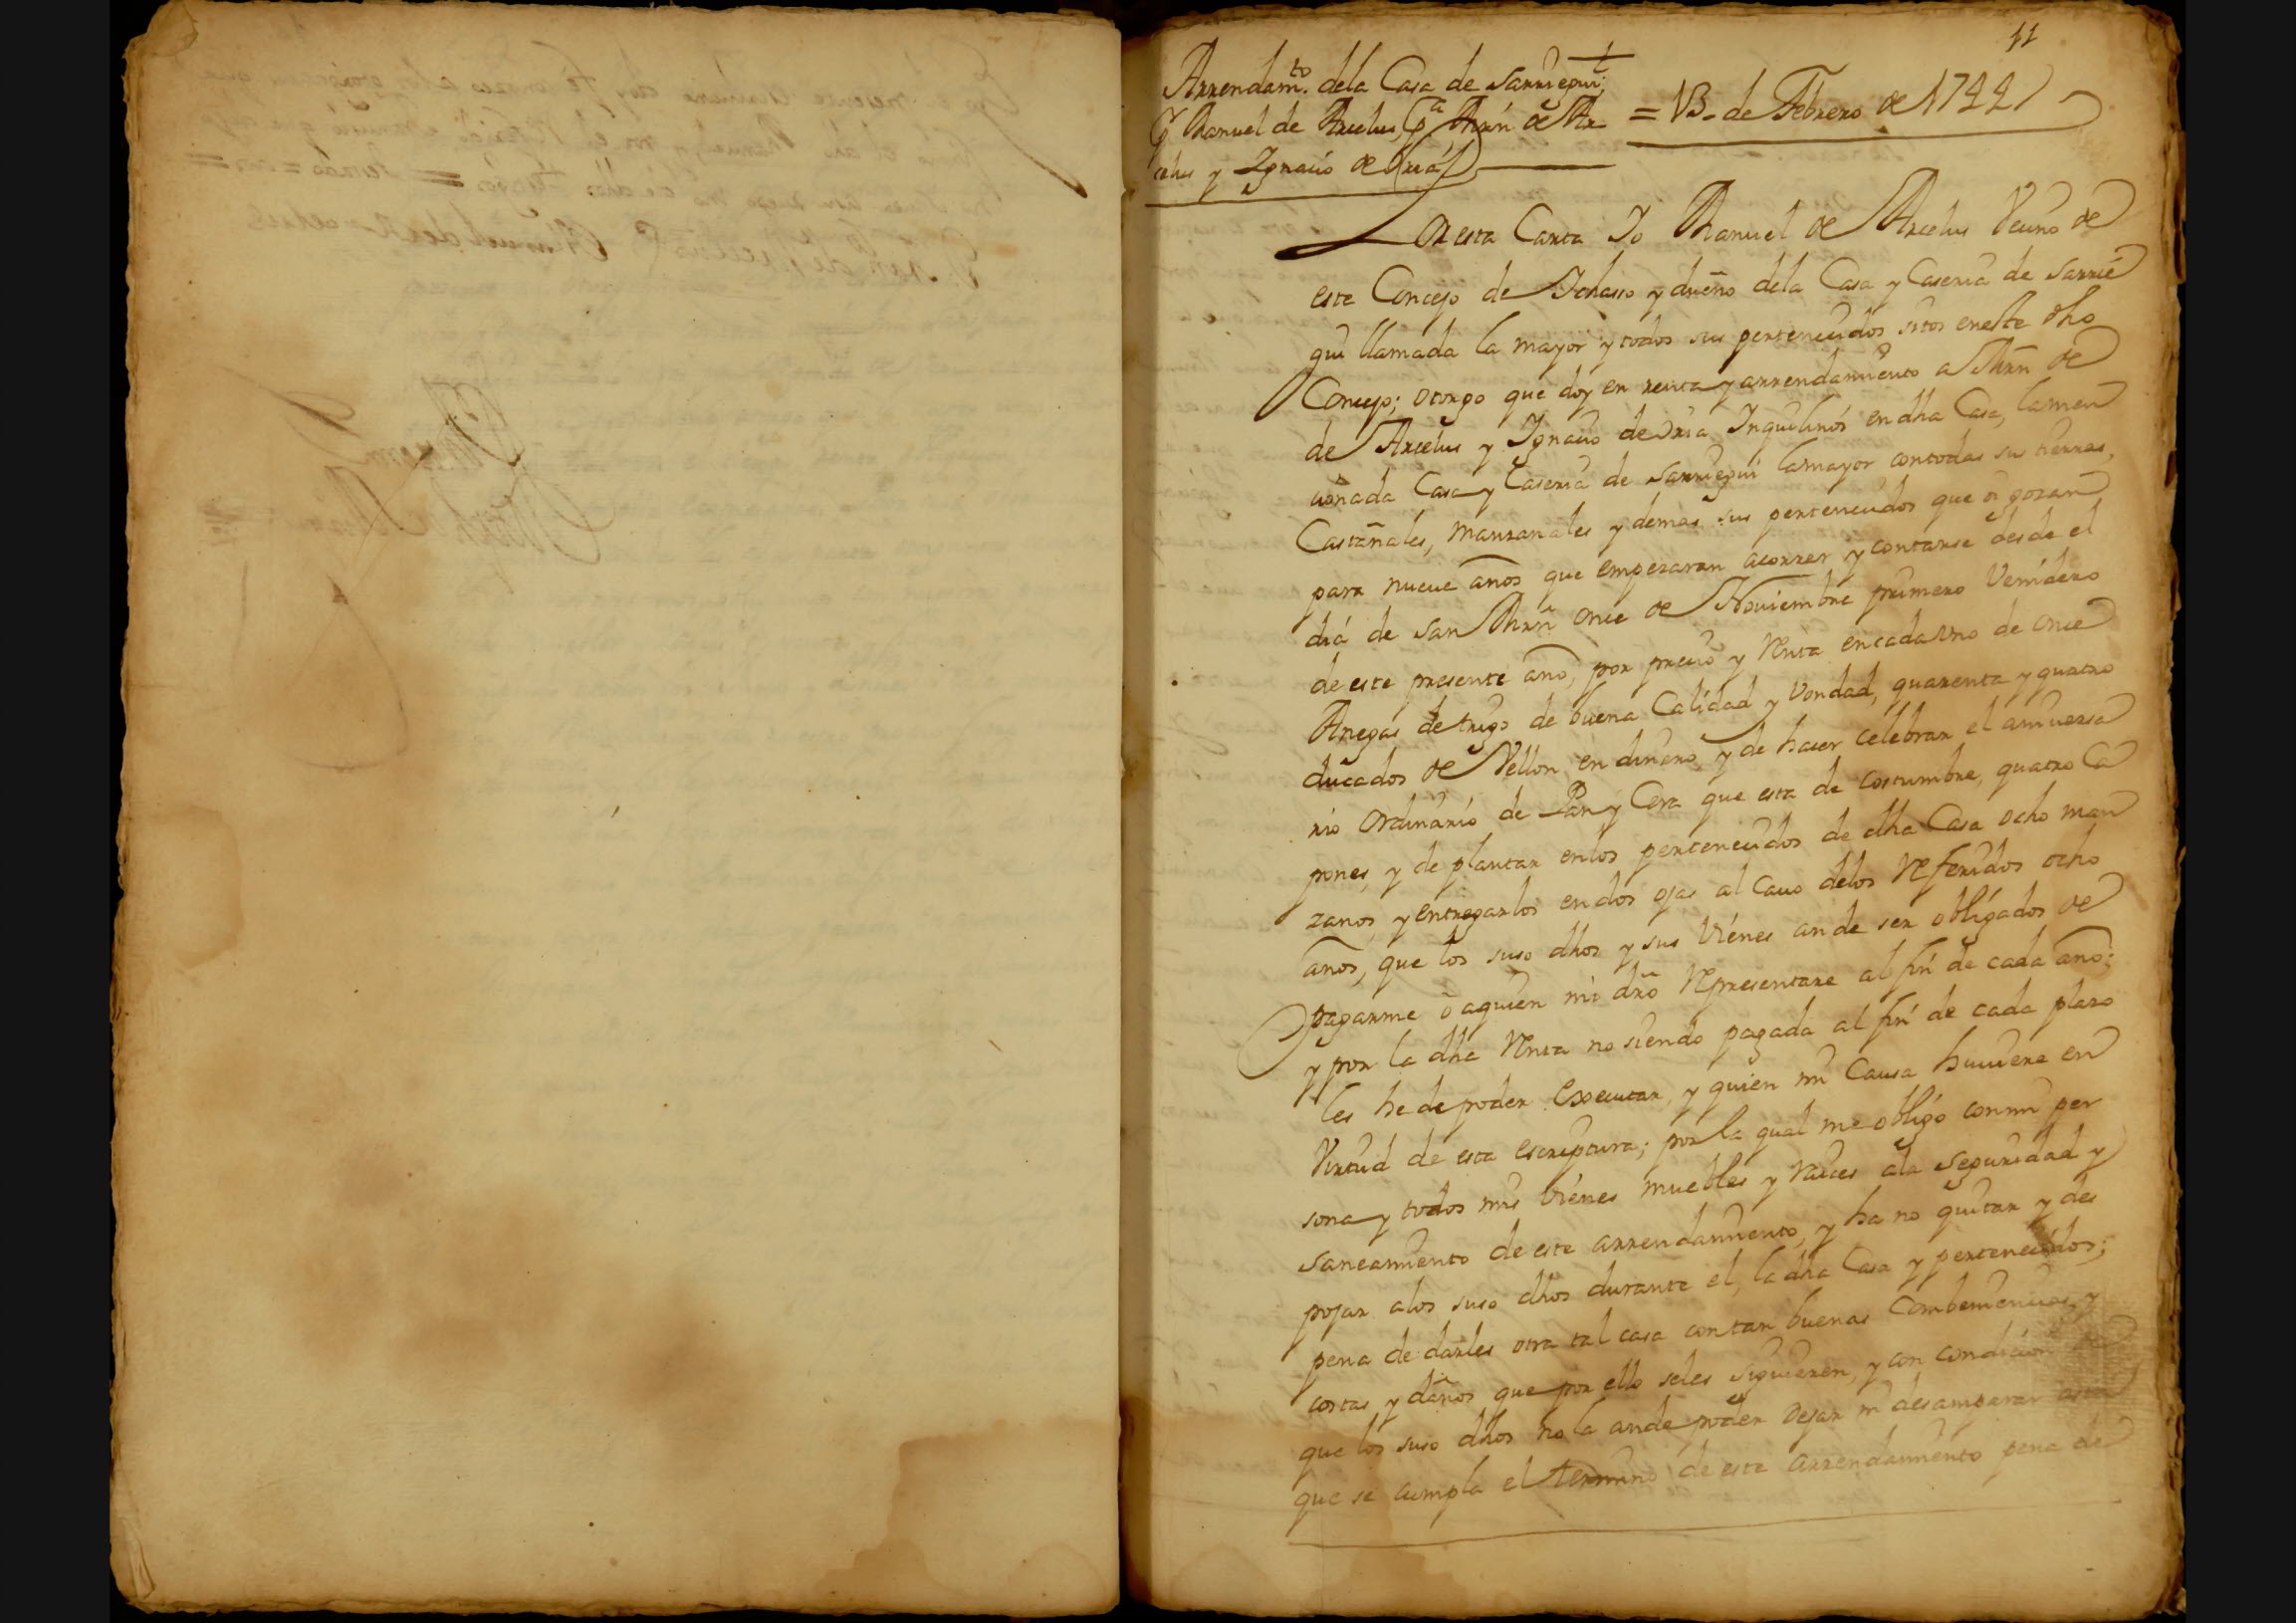 41
Arrendam.to dela Casa de Sarriegui;
Manuel de Arcelus, Mrn de Ar
celus y Ygnacio de Oria
= 13 de Febrero de 1744
Por esta Carta Yo Manuel de Arcelus Vecino de
este Concejo de Ychasso y dueño dela Casa y Caseria de Sarrie
gui llamada la mayor y todos sus pertenecidos sitos eneste dho
Concejo; otorgo que doy en renta y arrendamiento a Mrn de
de Arcelus y Ygnacio de Oria Inquilinos en dha Casa, la men
cionada Casa y Caseria de Sarriegui la mayor contodas sus tierras,
Castañales, manzanales y demas sus pertenecidos que oi gozan
para nueve años que empezaran acorrer y contarse desde el
dia de San Mrn once de Noviembre primero Venidero
de este presente año, por precio y Renta encadauno de once
Anegas de trigo de buena Calidad y Vondad, quarenta y quatro
ducados de Vellon en dinero, y de hacer celebrar el aniuersa
rio Ordinario de Pan y Cera que esta de costumbre, quatro Ca
pones, y de plantar enlos pertenecidos de dha Casa ocho man
zanos, y entregarlos en dos ojas al Cauo delos Referidos ocho
años, que los suso dhos y sus Vienes ande ser obligados de
pagarme o aquien mi dro Representare al fin de cada año:
y por la dha Renta no siendo pagada al fin de cada plazo
les he de poder Executar, y quien mi Causa huuiere en
Virtud de esta escriptura; por la qual me obligo con mi per
sona y todos mis Vienes muebles y Raices ala Seguridad y
saneamiento de este arrendamiento, y ha no quitar y des
pojar alos suso dhos durante el, la dha Casa y pertenecidos;
pena de darles otra tal casa con tan buenas Combeniencias, y
costas y daños, que por ello seles siguieren, y con condicion de
que los suso dhos no la ande poder dejar ni desamparar asta
que se cumpla el termino de este arrendamiento pena de